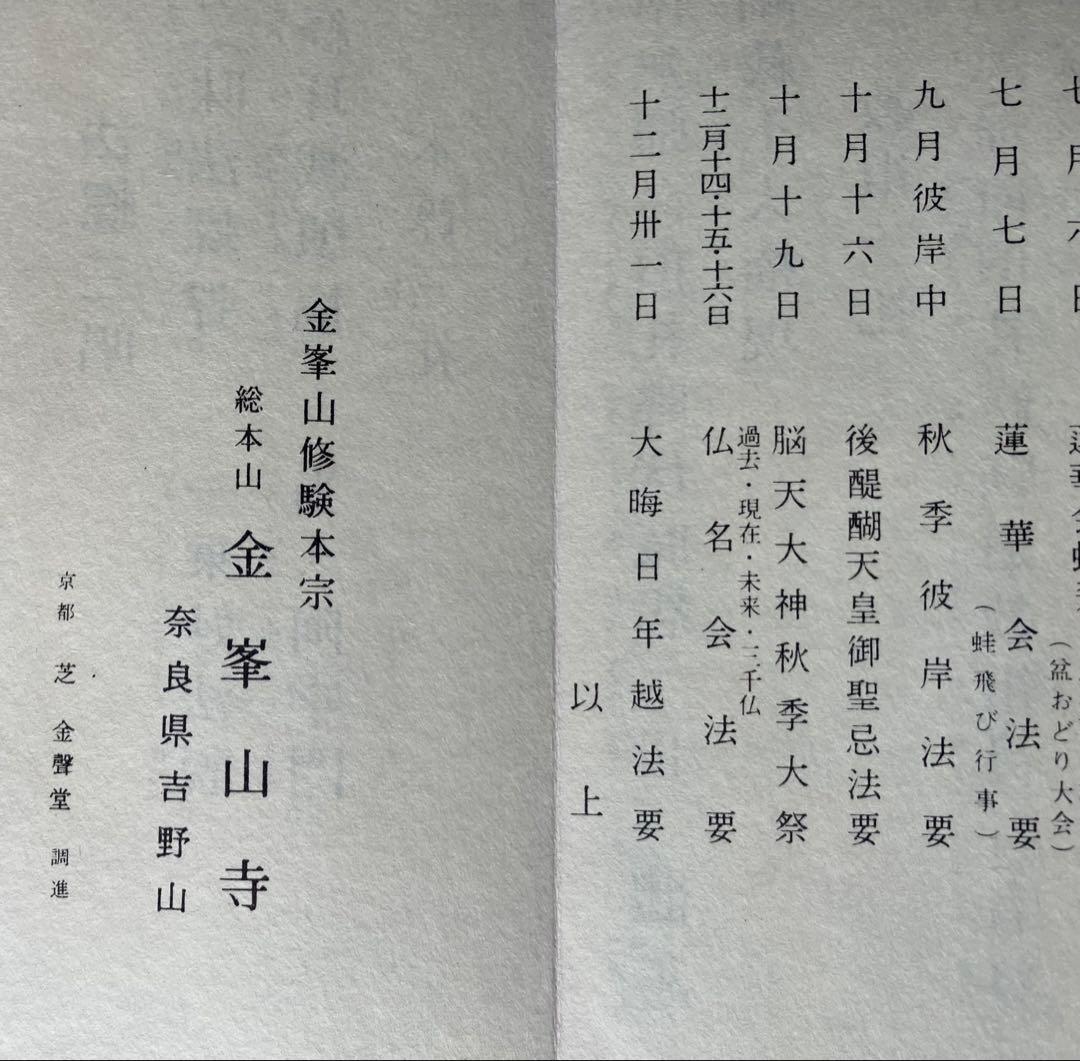 七月六日
蓮華会
(盆おどり大会)
七月七日
蓮華会法要
(蛙飛び行事)
九月彼岸中
秋季彼岸法要
十月十六日
後醍醐天皇御聖忌法要
十月十九日
脳天大神秋季大祭
過去・現在・未来・三千仏
十二月十四・十五・十六日
仏名会法要
十二月卅一日
大晦日年越法要
以上
金峯山修験本宗
総本山 金峯山寺
奈良県吉野山
京都 芝 金聲堂 調進